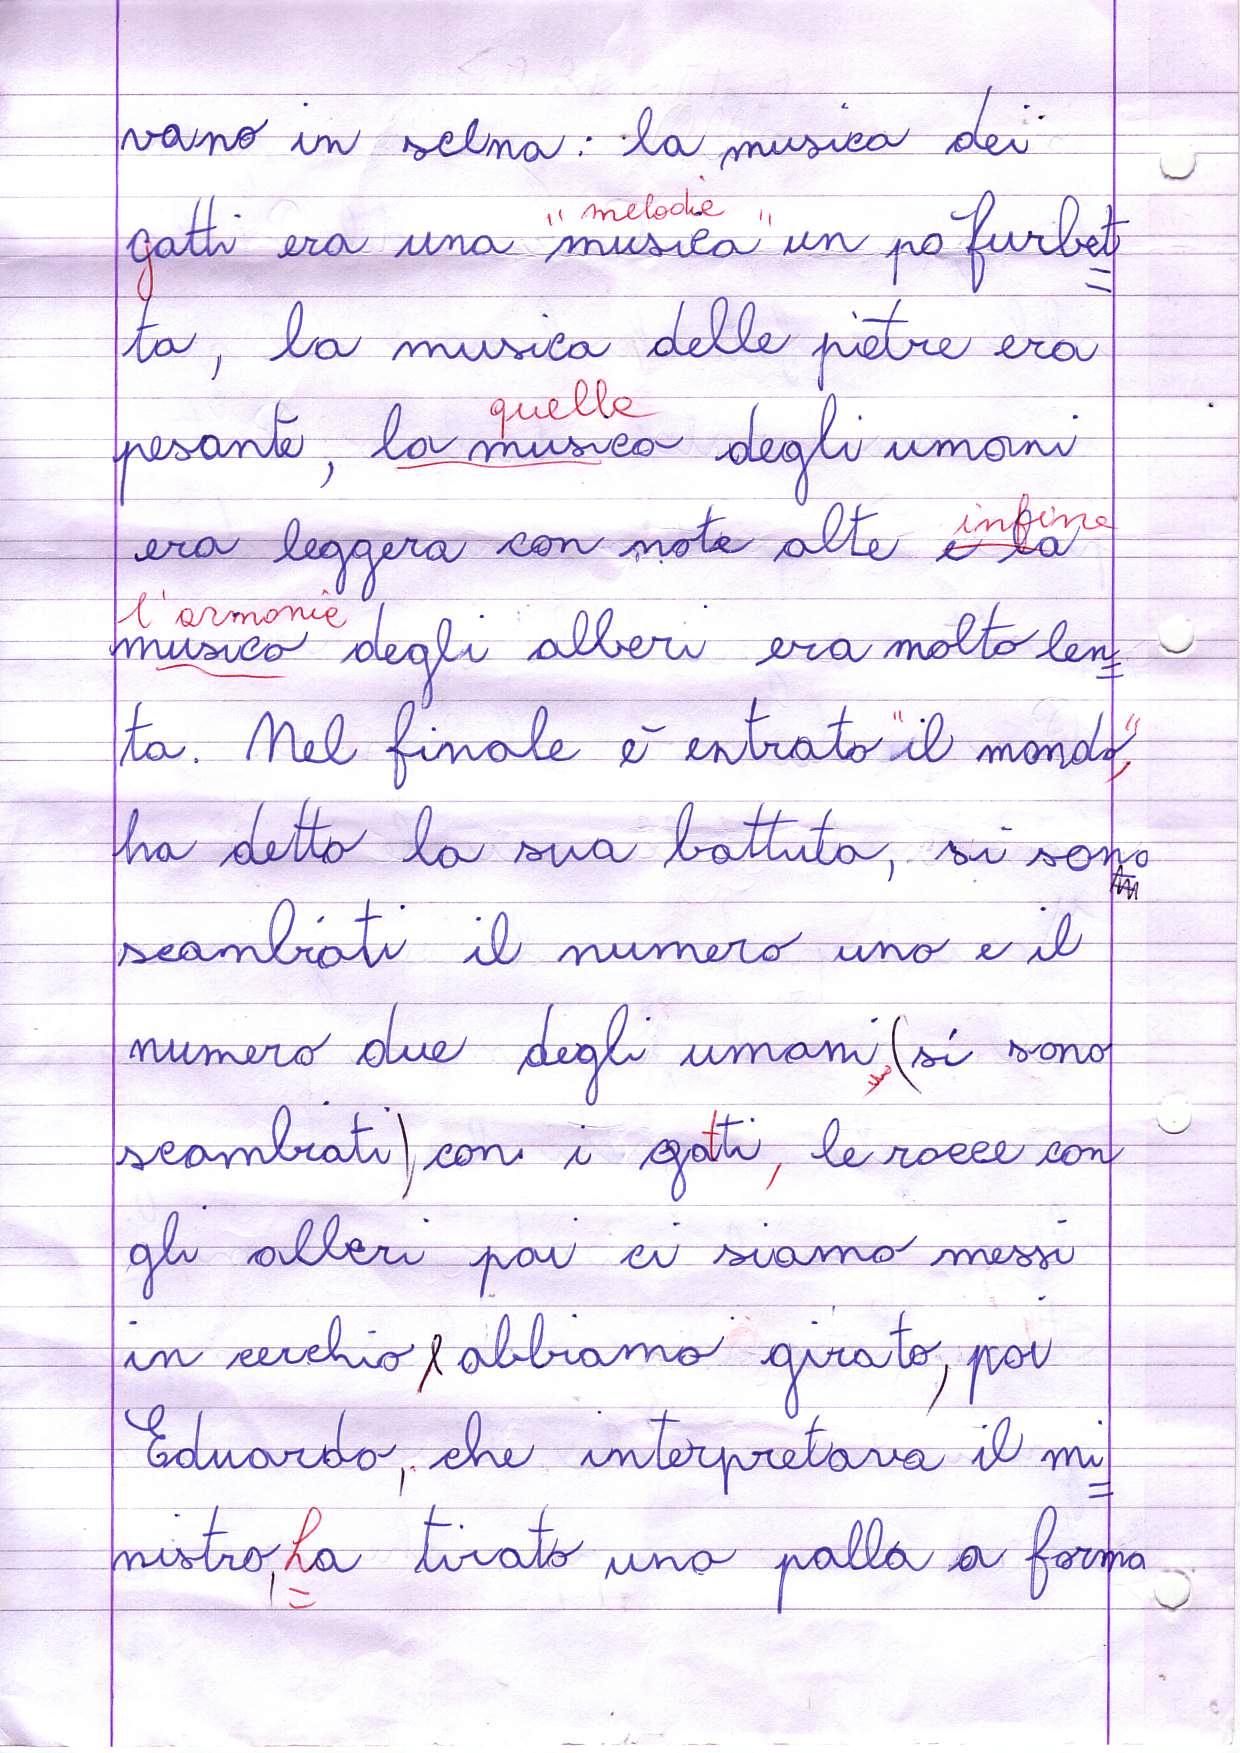 vano in scena: la musica dei
"melodie"
gatti era una musica un po furbet
ta, la musica delle pietre era
quelle
pesante, la musica degli umani
infine
era leggera con note alte e la
l'armonie
musica degli alberi era molto len
ta. Nel finale è entrato "il mondo",
ha detto la sua battuta, si sono
scambiati il numero uno e il
numero due degli umani, (si sono
scambiati) con i gatti, le rocce con
gli alberi poi ci siamo messi
in cerchio, abbiamo girato, poi
Eduardo, che interpretava il mi
nistro, ha tirato una palla a forma